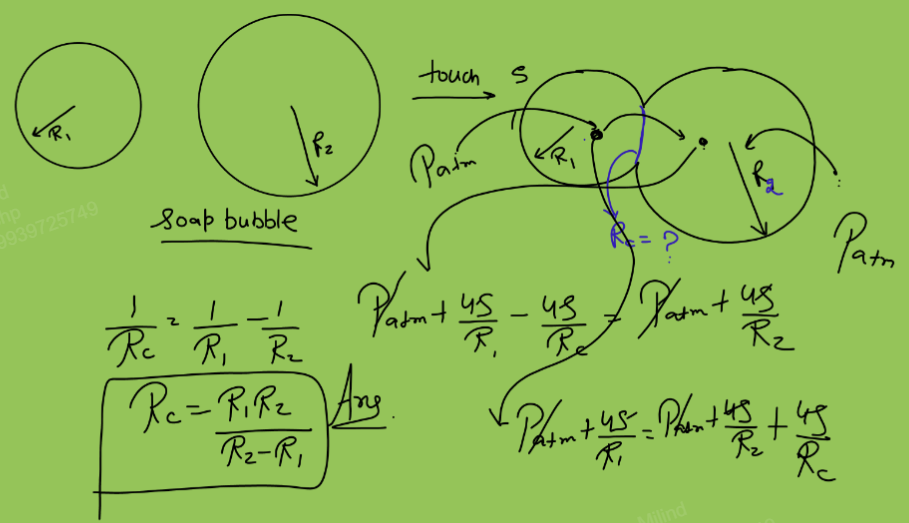 R₁
R₂
soap bubble
touch
S
Patm
R₁
R₂
Rc = ?
Patm
Patm + 4S/R₁ - 4S/Rc = Patm + 4S/R₂
Patm + 4S/R₁ = Patm + 4S/R₂ + 4S/Rc
1/Rc = 1/R₁ - 1/R₂
Rc = R₁R₂/R₂-R₁
Ans.
9939725749
Milind